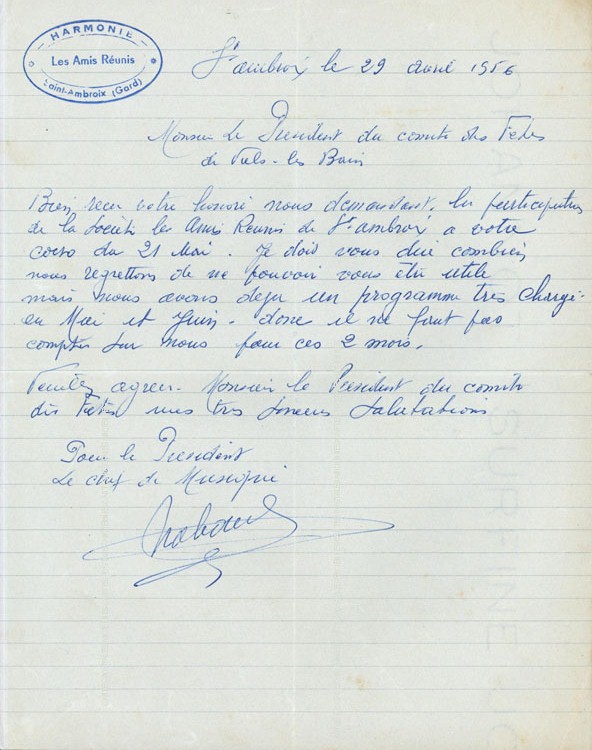 HARMONIE
Les Amis Réunis
Saint-Ambroix (Gard)
St ambroix le 29 avril 1956
Monsieur le President du comite des Fetes
de Vals-les Bains
Bien recu votre honoré nous demandant la participation
de la Societe les Amis Reunis de St ambroix a votre
corso du 21 Mai. Je dois vous dire combien
nous regrettons de ne pouvoir vous être utile
mais nous avons deja un programme très chargé
en Mai et Juin. donc il ne faut pas
compter sur nous pour ces 2 mois.
Veuillez agreer. Monsieur le President du comite
des Fetes mes très sinceres salutations
Pour le President
Le chef de Musique